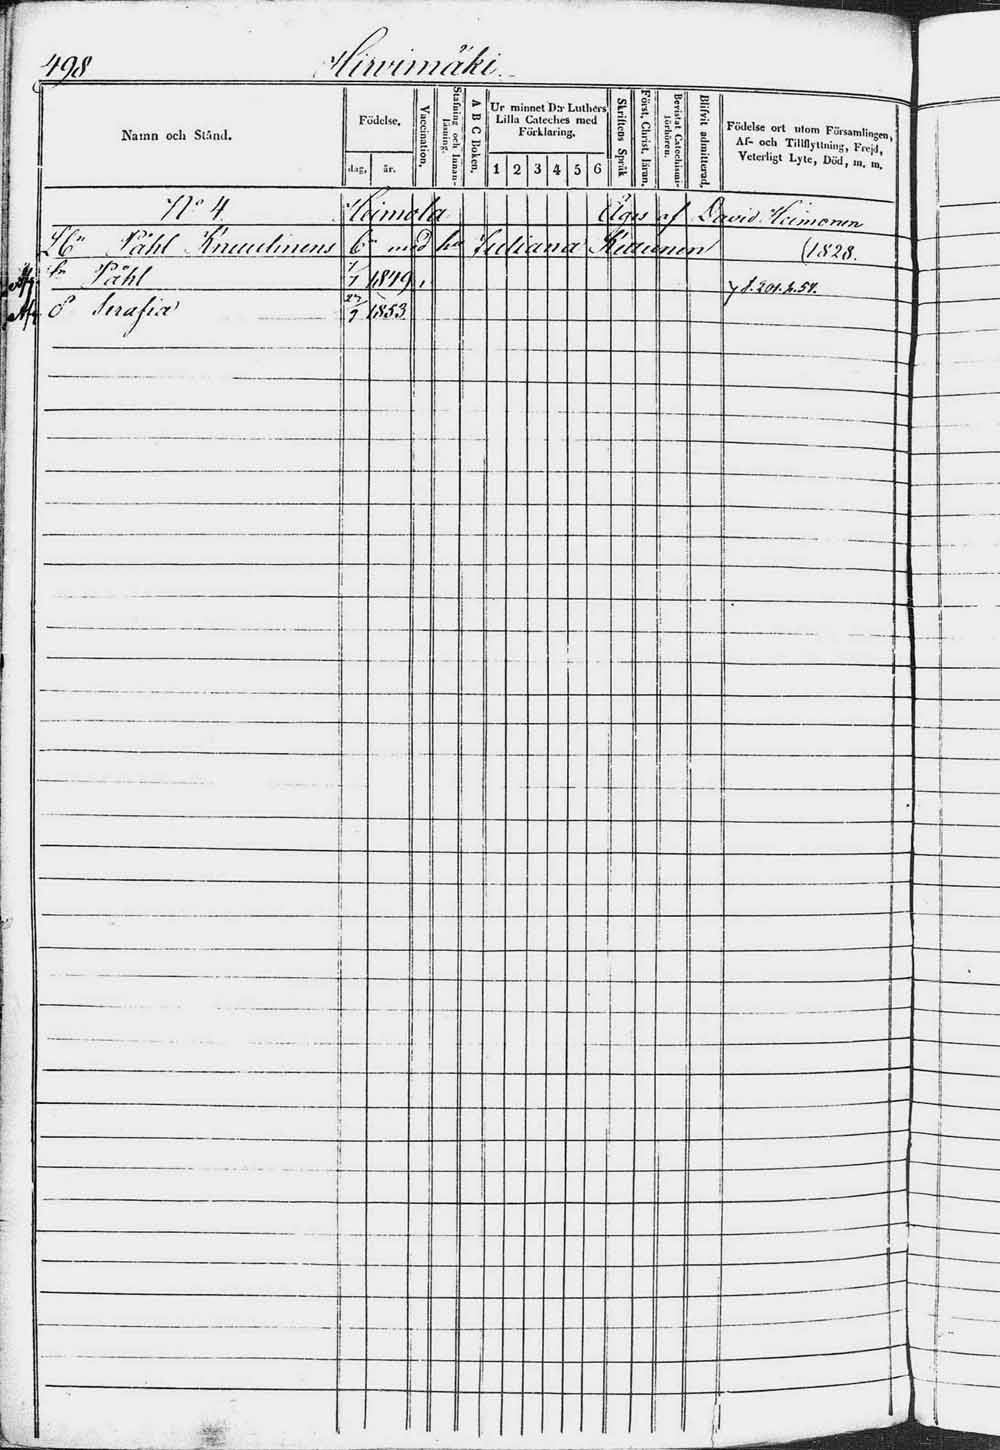 498 Hirvimäki
Namn och Stånd.
Födelse.
dag. år.
Vaccination.
Stafning och Innan-läsning.
A B C Boken.
Ur minnet D:r Luthers
Lilla Cateches med
Förklaring.
1 2 3 4 5 6
Skriftens Språk
Först. Christ. läran.
Bevistat Catechismi-förhören.
Blifvit admitterad.
Födelse ort utom Församlingen,
Af- och Tillflyttning, Frejd,
Veterligt Lyte, Död, m. m.
No 4 Heimola Äges af David Heimonen
Påhl Knuutinens med Juliana (1828.
Påhl 1849
D Serafia 27/9 1853